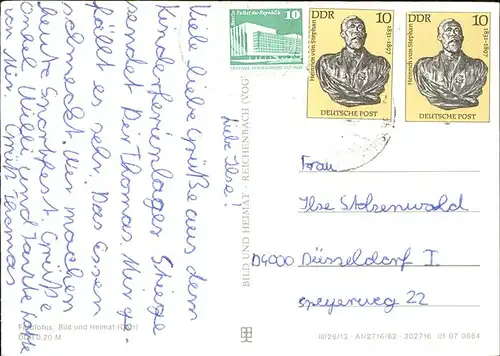 Liebe Ilse!
Viele liebe Grüße aus dem
Kinderferienlager Stiege
sendet Dir Thomas. Mir ge-
fällt es sehr. Das Essen
schmeckt. Wir machen
Grüße
Onkel Willi und Tante
von mir. Grüß Thomas
Palast der Republik
10
DDR 10
Heinrich von Stephan
1831-1897
DEUTSCHE POST
DDR 10
Heinrich von Stephan
1831-1897
DEUTSCHE POST
BILD UND HEIMAT · REICHENBACH (VOGTL)
Frau
Ilse Stolzenwald
D4000 Düsseldorf 1.
Speyerweg 22
Bild und Heimat
0.20 M
III/26/13 · A1/2716/82 · 302716 01 07 0084